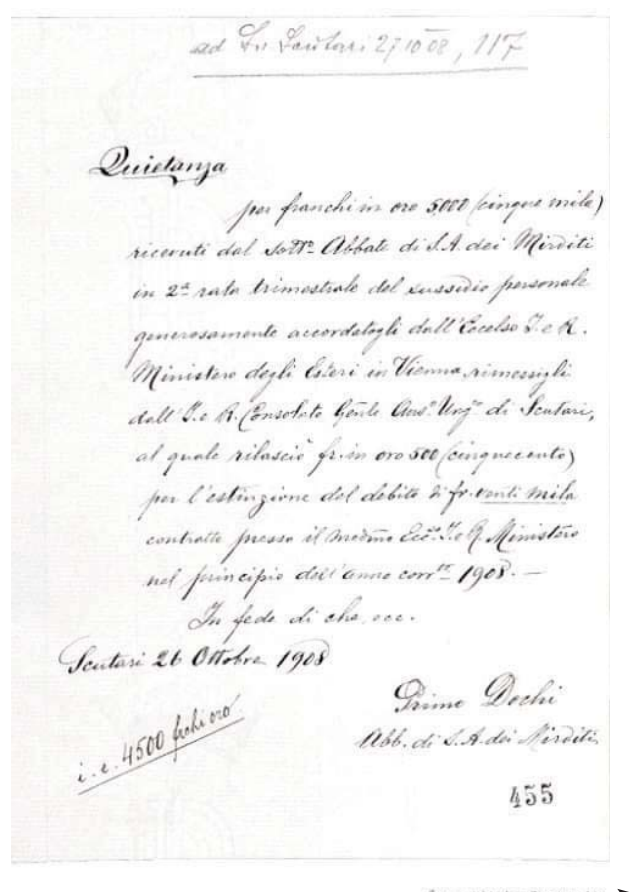 ad Scutari 27 10 08, 117
Quietanza
per franchi in oro 5,000 (cinque mila)
ricevuti dal sottº Abbate di S.A. dei Mirditi
in 2ª rata trimestrale del sussidio personale
generosamente accordatogli dall'Eccelso I. e R.
Ministero degli Esteri in Vienna, rimessigli
dall'I. e R. Consolato Genle Ausº Ungº di Scutari,
al quale rilasciò fr. in oro 500 (cinquecento)
per l'estinzione del debito di fr. venti mila
contratto presso il medmo Eccº I. e R. Ministero
nel principio dell'anno corrte 1908. —
In fede di che, ecc.
Scutari 26 Ottobre 1908
Primo Dochi
Abb. di S.A. dei Mirditi
i. e. 4500 frchi oro
455